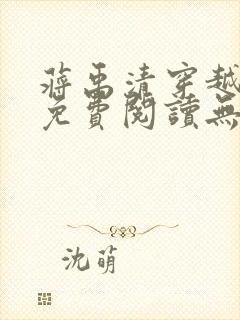 蔣禹清穿越
免費閱讀無
沈萌